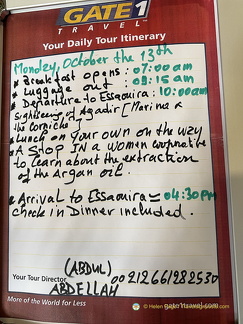 GATE 1
TRAVEL™
Your Daily Tour Itinerary
Monday, October the 13th
* Breakfast opens: 07:00am
* Luggage out : 08:15am
* Departure to Essaouira: 10:00am
Sightseeing of Agadir [Marina &
the Corniche]
* Lunch on your own on the way
* A Stop In a women cooperative
to learn about the extraction
of the Argan oil.
* Arrival to Essaouira = 04:30pm
check in Dinner included.
(ABDUL)
Your Tour Director 00212661282530
ABDELLAH
More of the World for Less
gate1travel.com